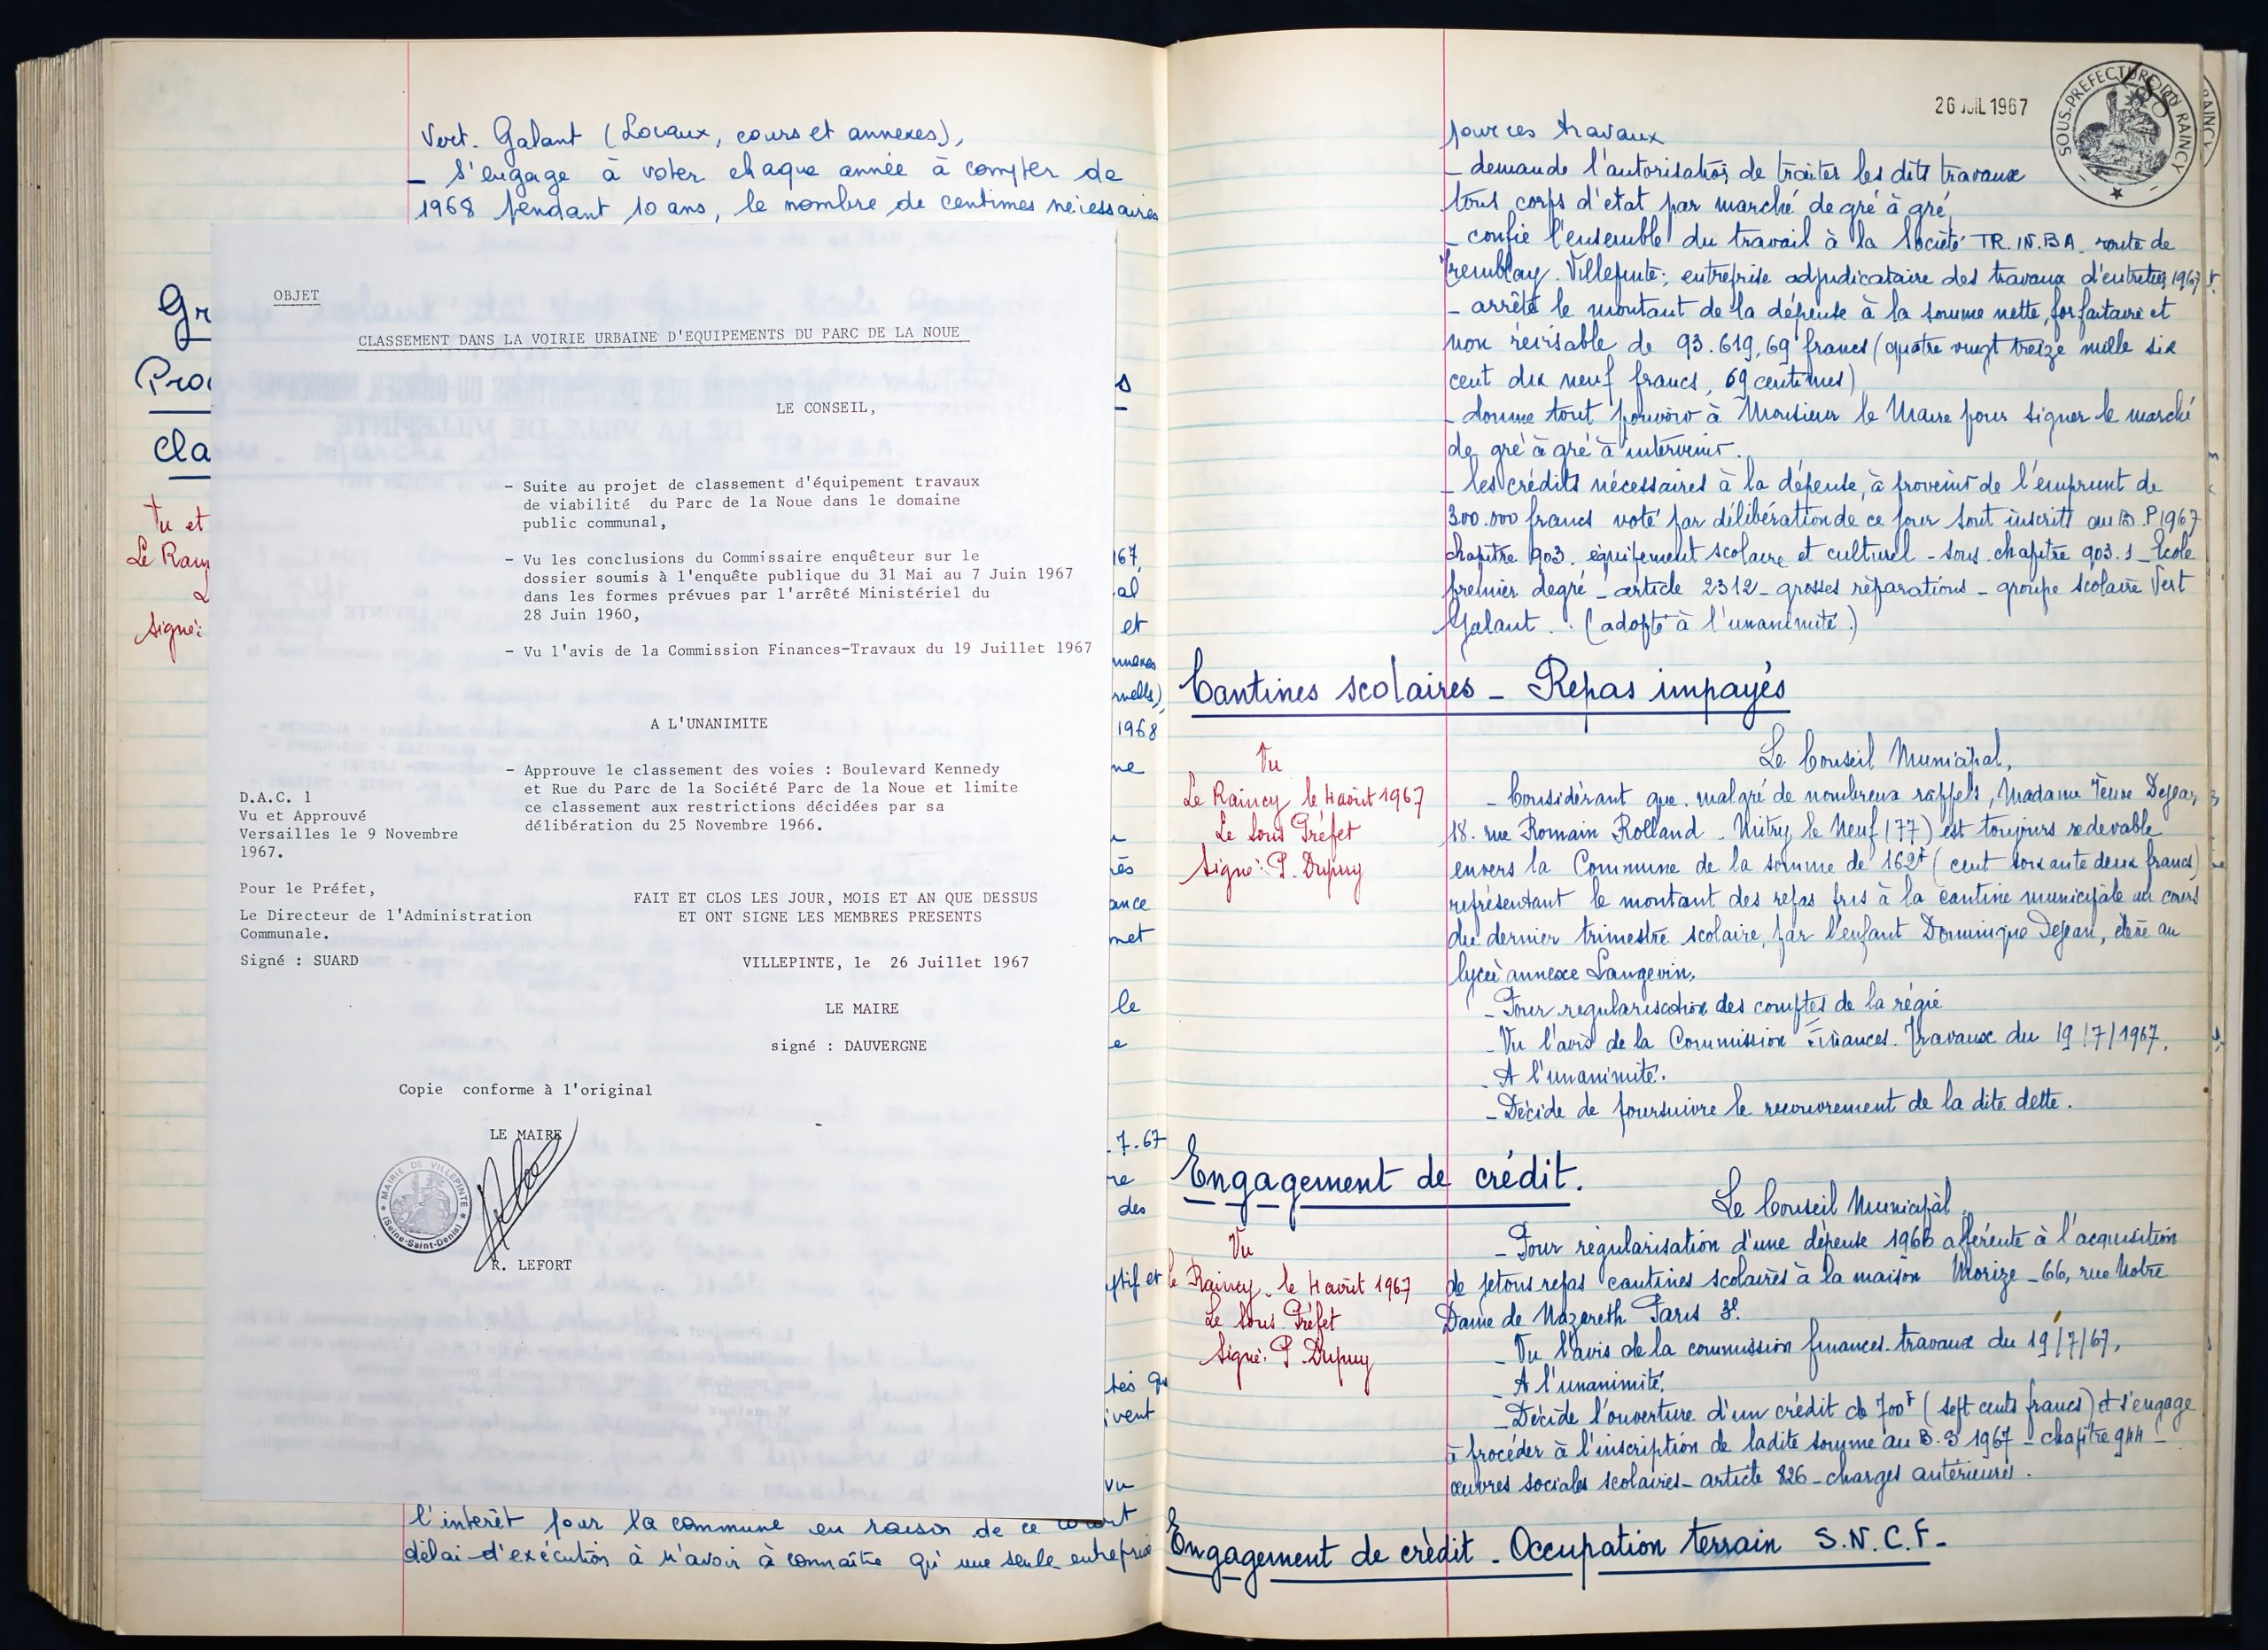 Vert. Galant (Locaux, cours et annexes),
_ s'engage à voter chaque année à compter de
1968 pendant 10 ans, le nombre de centimes nécessaires
Gr
Pro
cla
Vu et
Le Rain
L
Signé:
OBJET
CLASSEMENT DANS LA VOIRIE URBAINE D'EQUIPEMENTS DU PARC DE LA NOUE
LE CONSEIL,
- Suite au projet de classement d'équipement travaux
de viabilité du Parc de la Noue dans le domaine
public communal,
- Vu les conclusions du Commissaire enquêteur sur le
dossier soumis à l'enquête publique du 31 Mai au 7 Juin 1967
dans les formes prévues par l'arrêté Ministériel du
28 Juin 1960,
- Vu l'avis de la Commission Finances-Travaux du 19 Juillet 1967
A L'UNANIMITE
- Approuve le classement des voies : Boulevard Kennedy
et Rue du Parc de la Société Parc de la Noue et limite
ce classement aux restrictions décidées par sa
délibération du 25 Novembre 1966.
D.A.C. 1
Vu et Approuvé
Versailles le 9 Novembre
1967.
Pour le Préfet,
Le Directeur de l'Administration
Communale.
Signé : SUARD
FAIT ET CLOS LES JOUR, MOIS ET AN QUE DESSUS
ET ONT SIGNE LES MEMBRES PRESENTS
VILLEPINTE, le 26 Juillet 1967
LE MAIRE
signé : DAUVERGNE
Copie conforme à l'original
LE MAIRE
MAIRIE DE VILLEPINTE
(Seine-Saint-Denis)
R. LEFORT
s
167,
al
et
nnexes
rnelle),
1968
ne
ès
ance
met
le
e
7.67
re
des
ptif et
tés qu
ivent
vu
l'intérêt pour la commune en raison de ce court
délai d'exécution à n'avoir à connaître qu'une seule entreprise
26 JUIL 1967
SOUS-PREFECTURE DU RAINCY
188
pour ces travaux
_ demande l'autorisation de traiter les dits travaux
tous corps d'état par marché de gré à gré
_ confie l'ensemble du travail à la Société TR.IN.BA. route de
Tremblay. Villepinte; entreprise adjudicataire des travaux d'entretien 1967
_ arrête le montant de la dépense à la somme nette, forfaitaire et
non révisable de 93.619,69 francs (quatre vingt treize mille six
cent dix neuf francs, 69 centimes)
_ donne tout pouvoir à Monsieur le Maire pour signer le marché
de gré à gré à intervenir.
_ les crédits nécessaires à la dépense, à provenir de l'emprunt de
300.000 francs voté par délibération de ce jour sont inscrits au B.P 1967
chapitre 903. équipement scolaire et culturel - sous.chapitre 903.1 _ Ecole
premier degré _ article 2312 _ grosses réparations _ groupe scolaire Vert
Galant. (adopté à l'unanimité.)
Cantines scolaires _ Repas impayés
Vu
Le Raincy le 4 août 1967
Le Sous Préfet
Signé: P. Dupuy
Le Conseil Municipal,
_ Considérant que malgré de nombreux rappels, Madame Veuve Dejean
18. rue Romain Rolland _ Mitry le Neuf (77) est toujours redevable
envers la Commune de la somme de 162F (cent soixante deux francs)
représentant le montant des repas pris à la cantine municipale au cours
du dernier trimestre scolaire, par l'enfant Dominique Dejean, élève au
lycée annexe Langevin.
_ Pour regularisation des comptes de la régie
_ Vu l'avis de la Commission Finances. Travaux du 19/7/1967,
_ A l'unanimité.
_ Décide de poursuivre le recouvrement de la dite dette.
Engagement de crédit.
Vu
le Raincy _ le 4 août 1967
Le Sous Préfet
Signé. P. Dupuy
Le Conseil Municipal
_ Pour régularisation d'une dépense 1966 afférente à l'acquisition
de jetons repas cantines scolaires à la maison Morize _ 66, rue Notre
Dame de Nazareth Paris 3e.
_ Vu l'avis de la commission finances. travaux du 19/7/67,
_ A l'unanimité,
_ Décide l'ouverture d'un crédit de 700F (sept cents francs) et s'engage
à procéder à l'inscription de ladite somme au B.S 1967 _ chapitre 944 _
œuvres sociales scolaires _ article 826 _ charges antérieures.
Engagement de crédit _ Occupation terrain S.N.C.F _